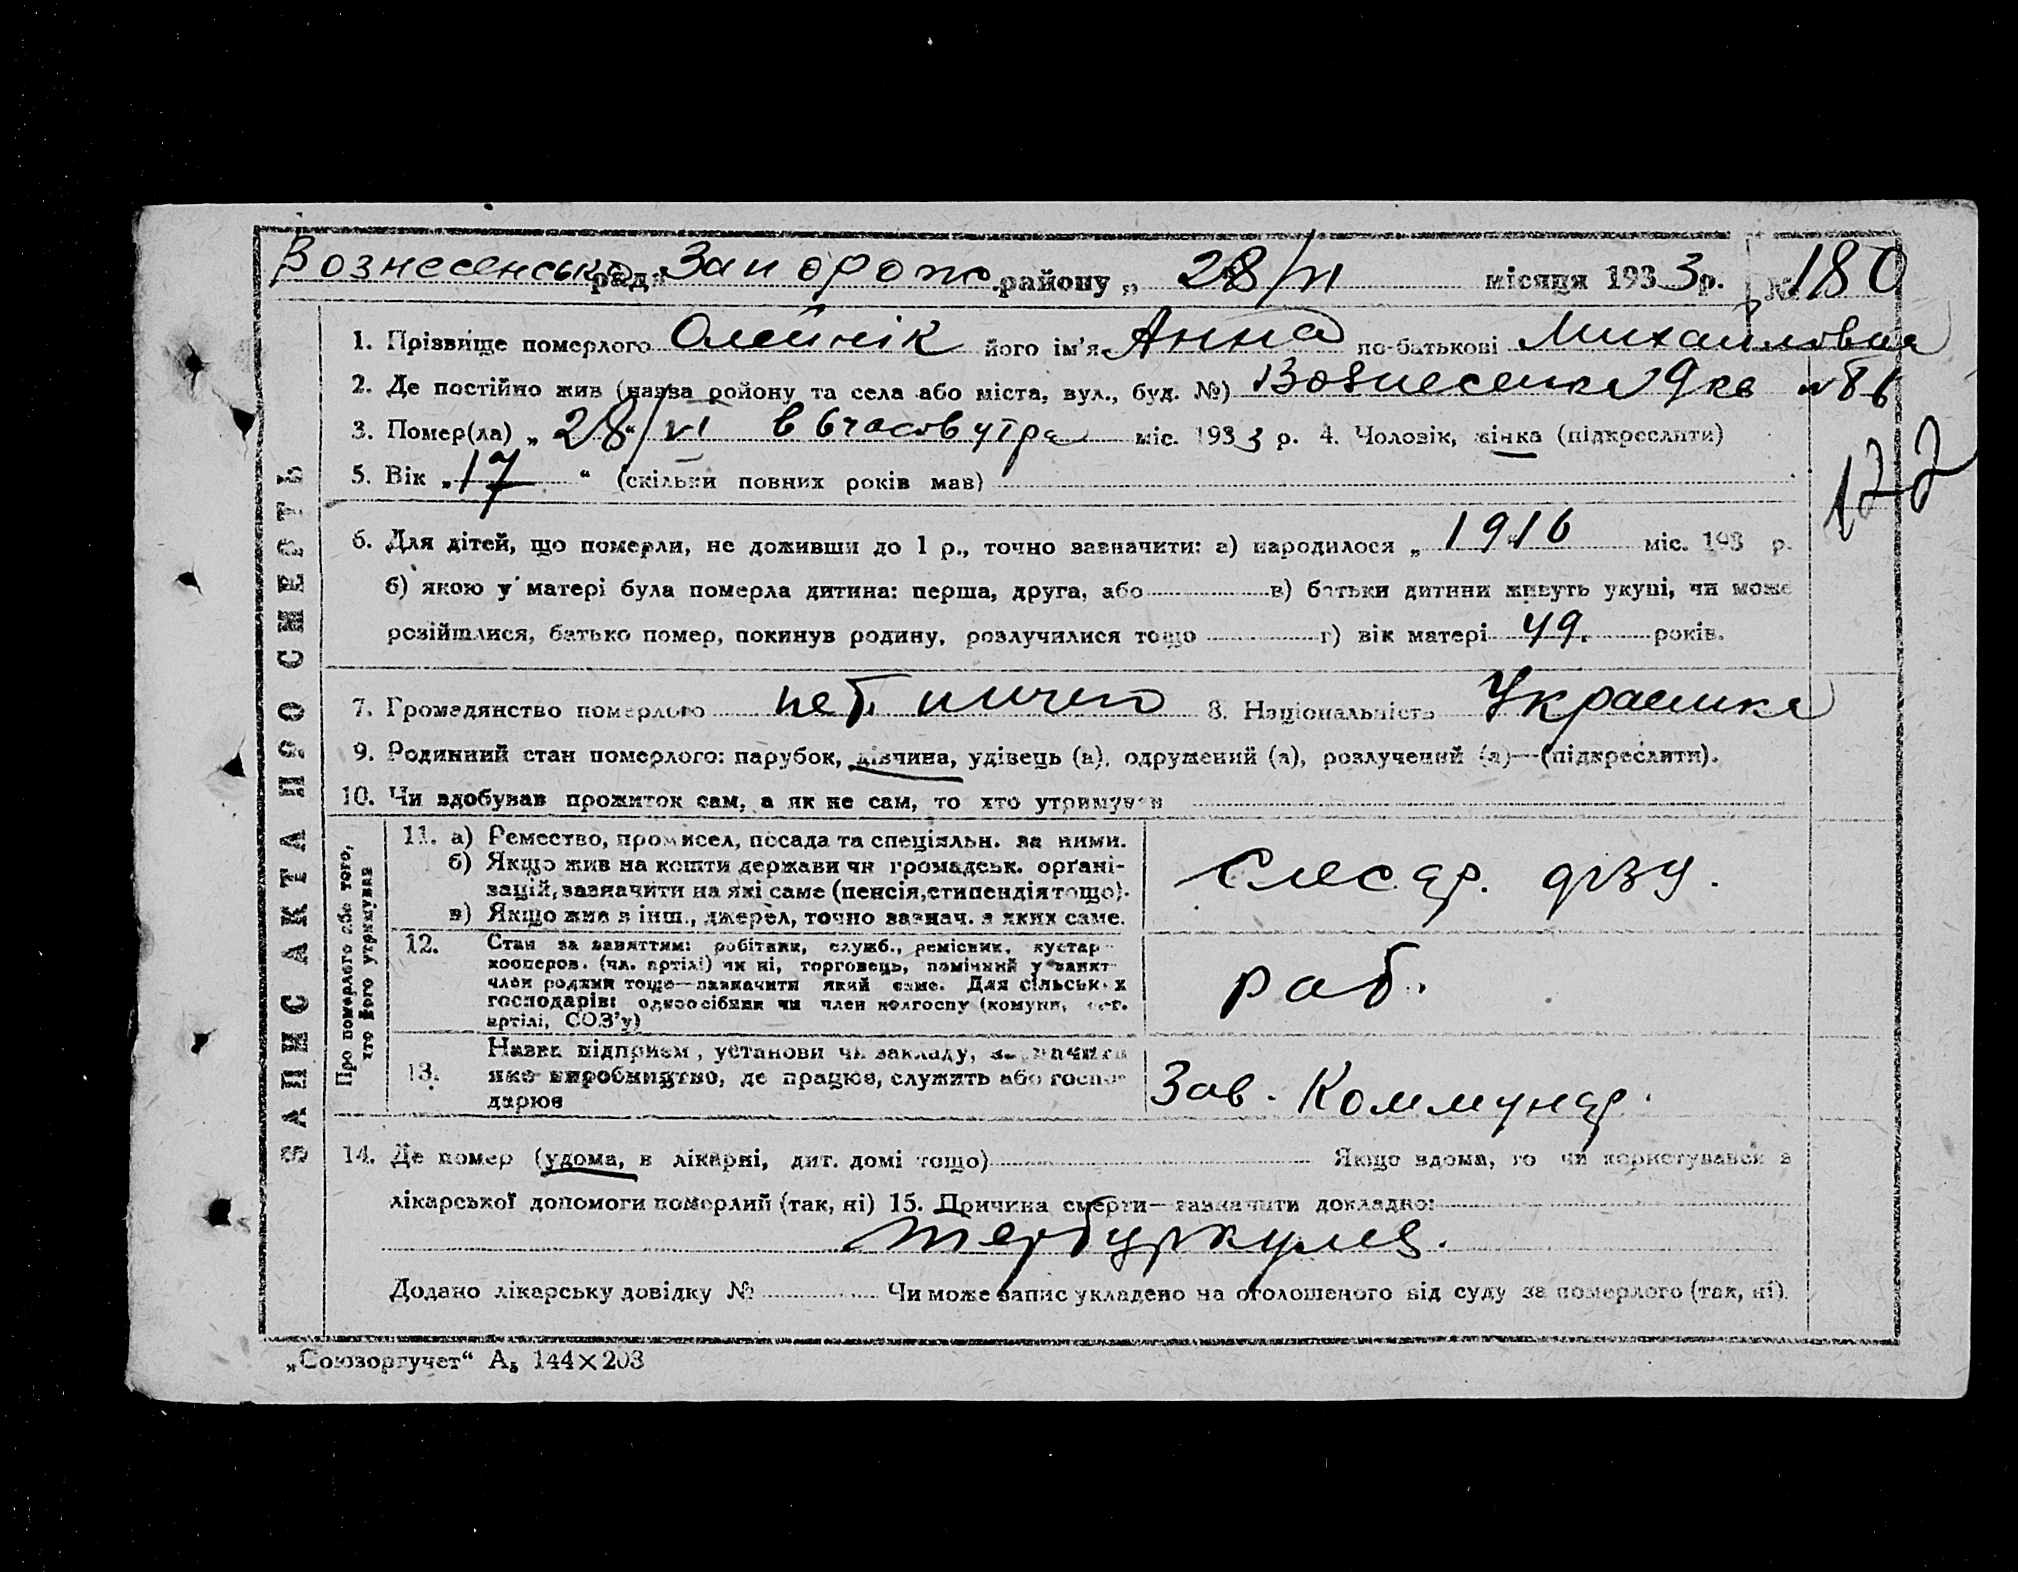 Вознесенська рада Запорож. району „ 28/VI місяця 1933 р. № 180
ЗАПИС АКТА ПРО СМЕРТЬ
1. Прізвище померлого Олейнік його ім’я Анна по-батькові Михайловна
2. Де постійно жив (назва ройону та села або міста, вул., буд. №) Вознесенка 9 кв № 86
3. Помер(ла) „ 28/VI в 6 часов утра міс. 1933 р. 4. Чоловік, жінка (підкреслити)
122
5. Вік „ 17 “ (скільки повних років мав)
6. Для дітей, що померли, не доживши до 1 р., точно зазначити: а) народилося „ 1916 міс. 193 р.
б) якою у матері була померла дитина: перша, друга, або в) батьки дитини живуть укупі, чи може
розійшлися, батько помер, покинув родину, розлучилися тощо г) вік матері 49. років.
7. Громадянство померлого нет ничего 8. Національність Украинка
9. Родинний стан померлого: парубок, дівчина, удівець (а), одружений (а), розлучений (а)—(підкреслити).
10. Чи здобував прожиток сам, а як не сам, то хто утримував
Про померлого або того, хто його утримував
11. а) Ремество, промисел, посада та спеціяльн. за ними.
б) Якщо жив на кошти держави чи громадськ. орґані-
зацій, зазначити на які саме (пенсія, стипендія тощо).
в) Якщо жив з інш., джерел, точно зазнач. з яких саме.
Слесар. фзу.
12. Стан за заняттям: робітник, служб., ремісник, кустар
кооперов. (чл. артілі) чи ні, торговець, помічний у занят.
член родини тощо—зазначити який саме. Для сільських
господарів: одноосібник чи член колгоспу (комуни,
артілі, СОЗ’у)
раб.
13. Назва підприєм., установи чи закладу, зазначити
яке виробництво, де працює, служить або госпо-
дарює
Зав. Коммунар.
14. Де помер (удома, в лікарні, дит. домі тощо) Якщо вдома, то чи користувався з
лікарської допомоги померлий (так, ні) 15. Причина смерти—зазначити докладно:
тербуркулез.
Додано лікарську довідку № Чи може запис укладено на оголошеного від суду за померлого (так, ні).
„Союзоргучет“ А₅ 144×203